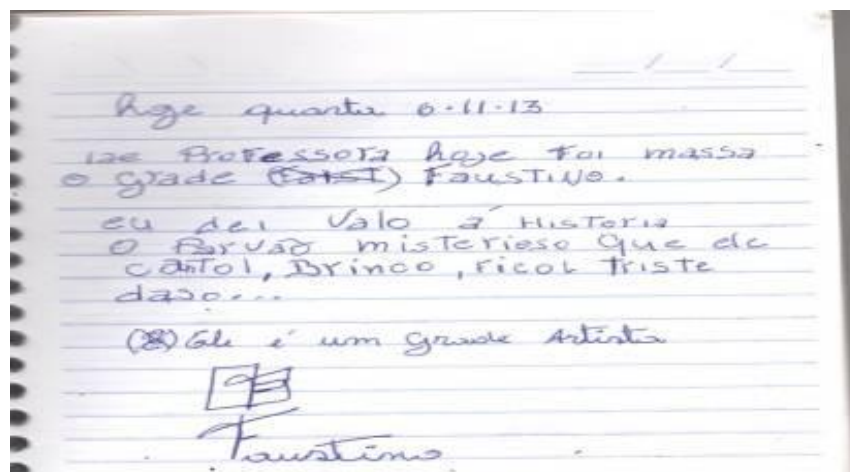 hoje quarta 6.11.13
iae Professora hoje foi massa
o grade (Faist) FAUSTINO.
eu dei Valo a HISTORIA
O misterioso que ele
cantol, Brinco, ficol triste
(8) Ele é um grade Artista
Faustino